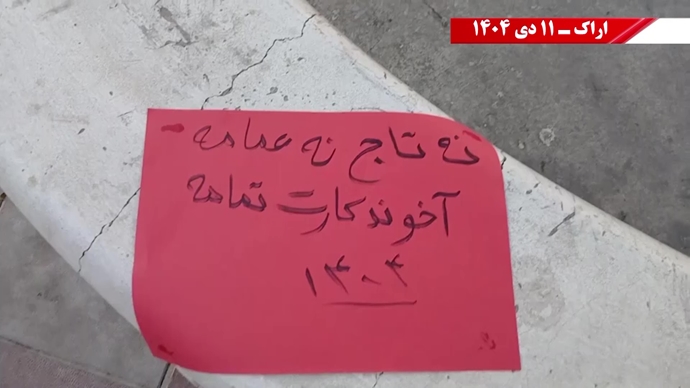 اراک ـ ۱۱ دی ۱۴۰۴
نه تاج نه عمامه
آخوند کارت تمامه
۱۴۰۴